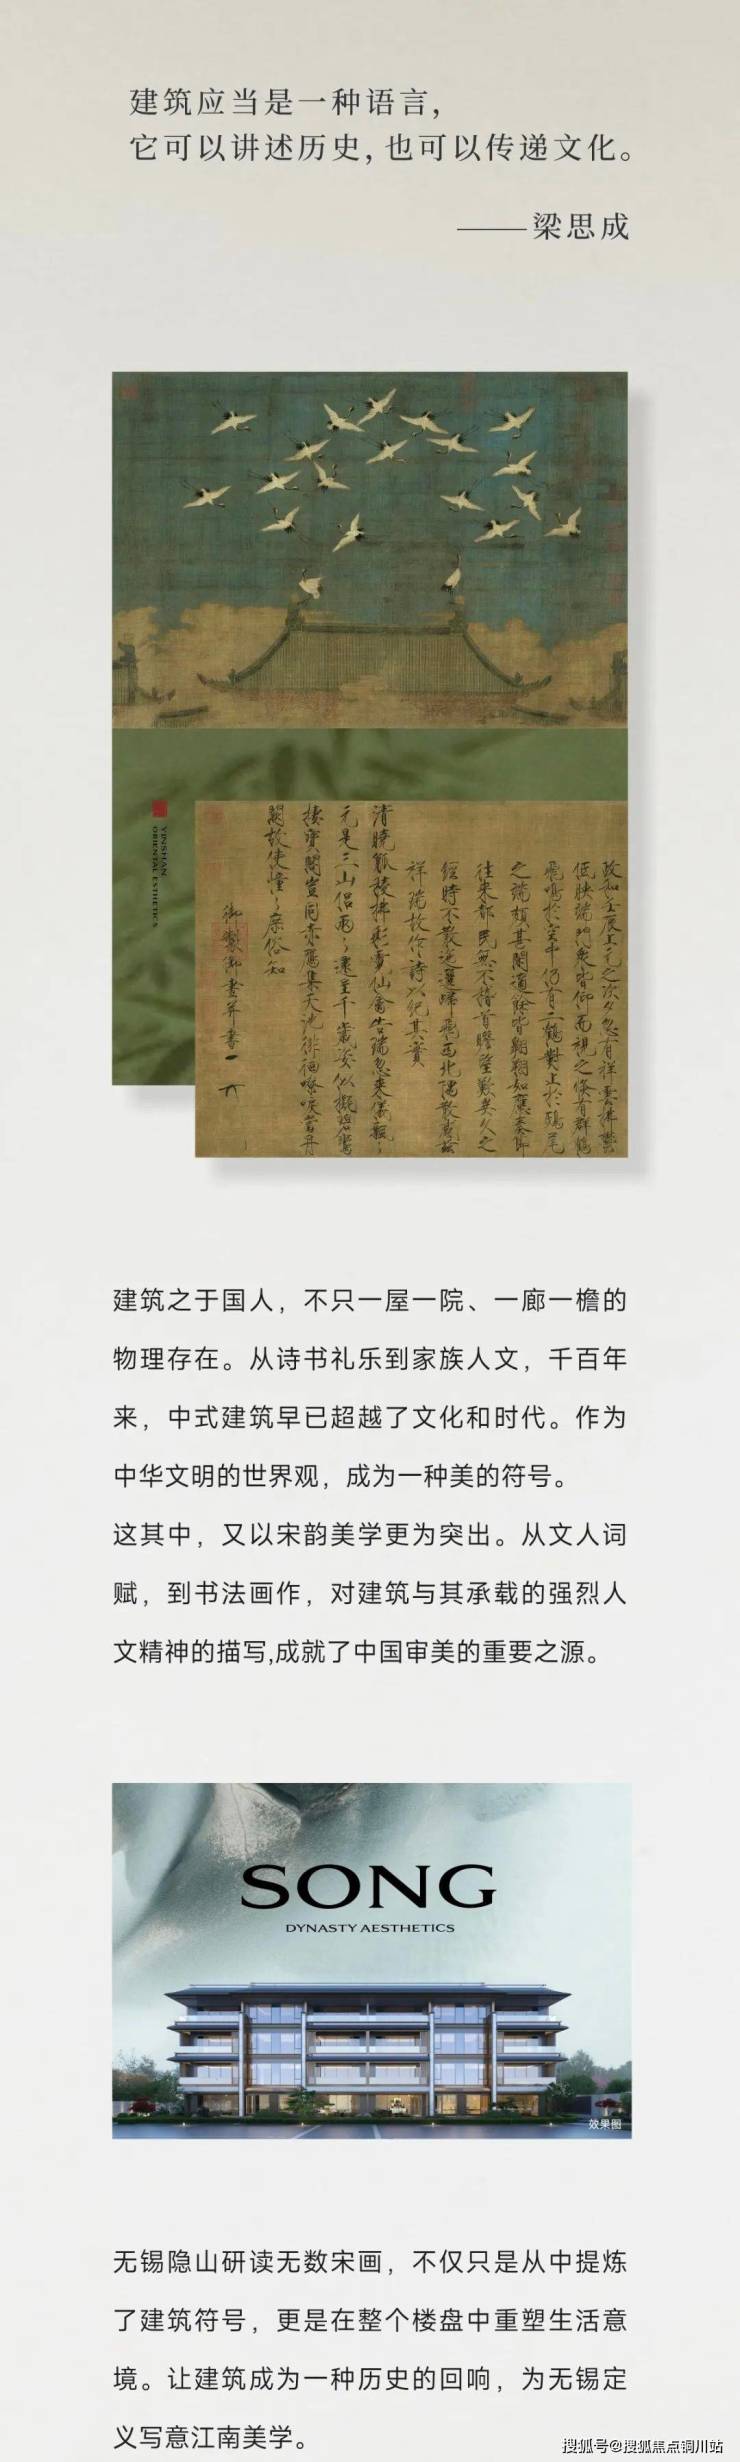 建筑应当是一种语言，
它可以讲述历史，也可以传递文化。
——梁思成
YINSHAN
ORIENTAL ESTHETICS
政和壬辰上元之次夕忽有祥雲拂鬱
低映端門衆皆仰而視之倏有群鶴
飛鳴於空中仍有二鶴對止於鴟尾
之端頗甚閑適餘皆翱翔如應奏節
往來都民無不稽首瞻望歎異久之
經時不散迤邐歸飛西北隅散感茲
祥瑞故作詩以紀其實
清曉觚稜拂彩霓仙禽告瑞忽來儀飄〻
元是三山侶兩〻還呈千歲姿似擬碧鸞
棲寶閣豈同赤鴈集天池徘徊嘹唳當丹
闕故使憧〻庶俗知
御製御畫并書
建筑之于国人，不只一屋一院、一廊一檐的
物理存在。从诗书礼乐到家族人文，千百年
来，中式建筑早已超越了文化和时代。作为
中华文明的世界观，成为一种美的符号。
这其中，又以宋韵美学更为突出。从文人词
赋，到书法画作，对建筑与其承载的强烈人
文精神的描写,成就了中国审美的重要之源。
SONG
DYNASTY AESTHETICS
效果图
无锡隐山研读无数宋画，不仅只是从中提炼
了建筑符号，更是在整个楼盘中重塑生活意
境。让建筑成为一种历史的回响，为无锡定
义写意江南美学。
搜狐号@搜狐焦点铜川站